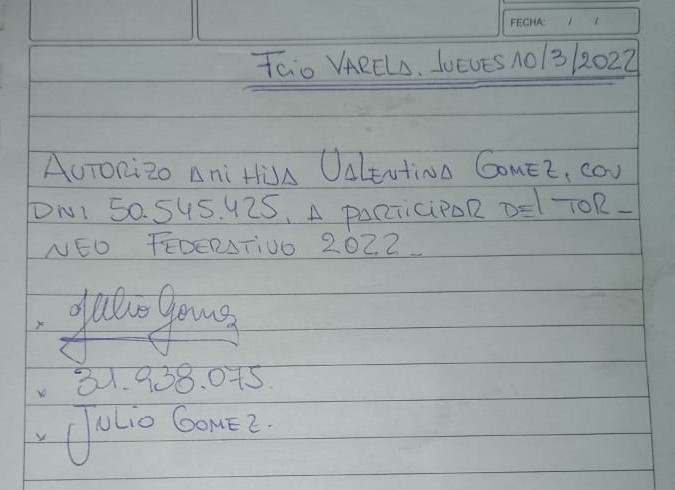 FECHA: / /
Fcio VARELA. JUEVES 10/3/2022
AUTORIZO A mi HIJA VALENTINA GOMEZ, CON
DNI 50.545.425, A PARTICIPAR DEL TOR-
NEO FEDERATIVO 2022-
x Julio Gomez
x 31.938.075.
x JULIO GOMEZ.